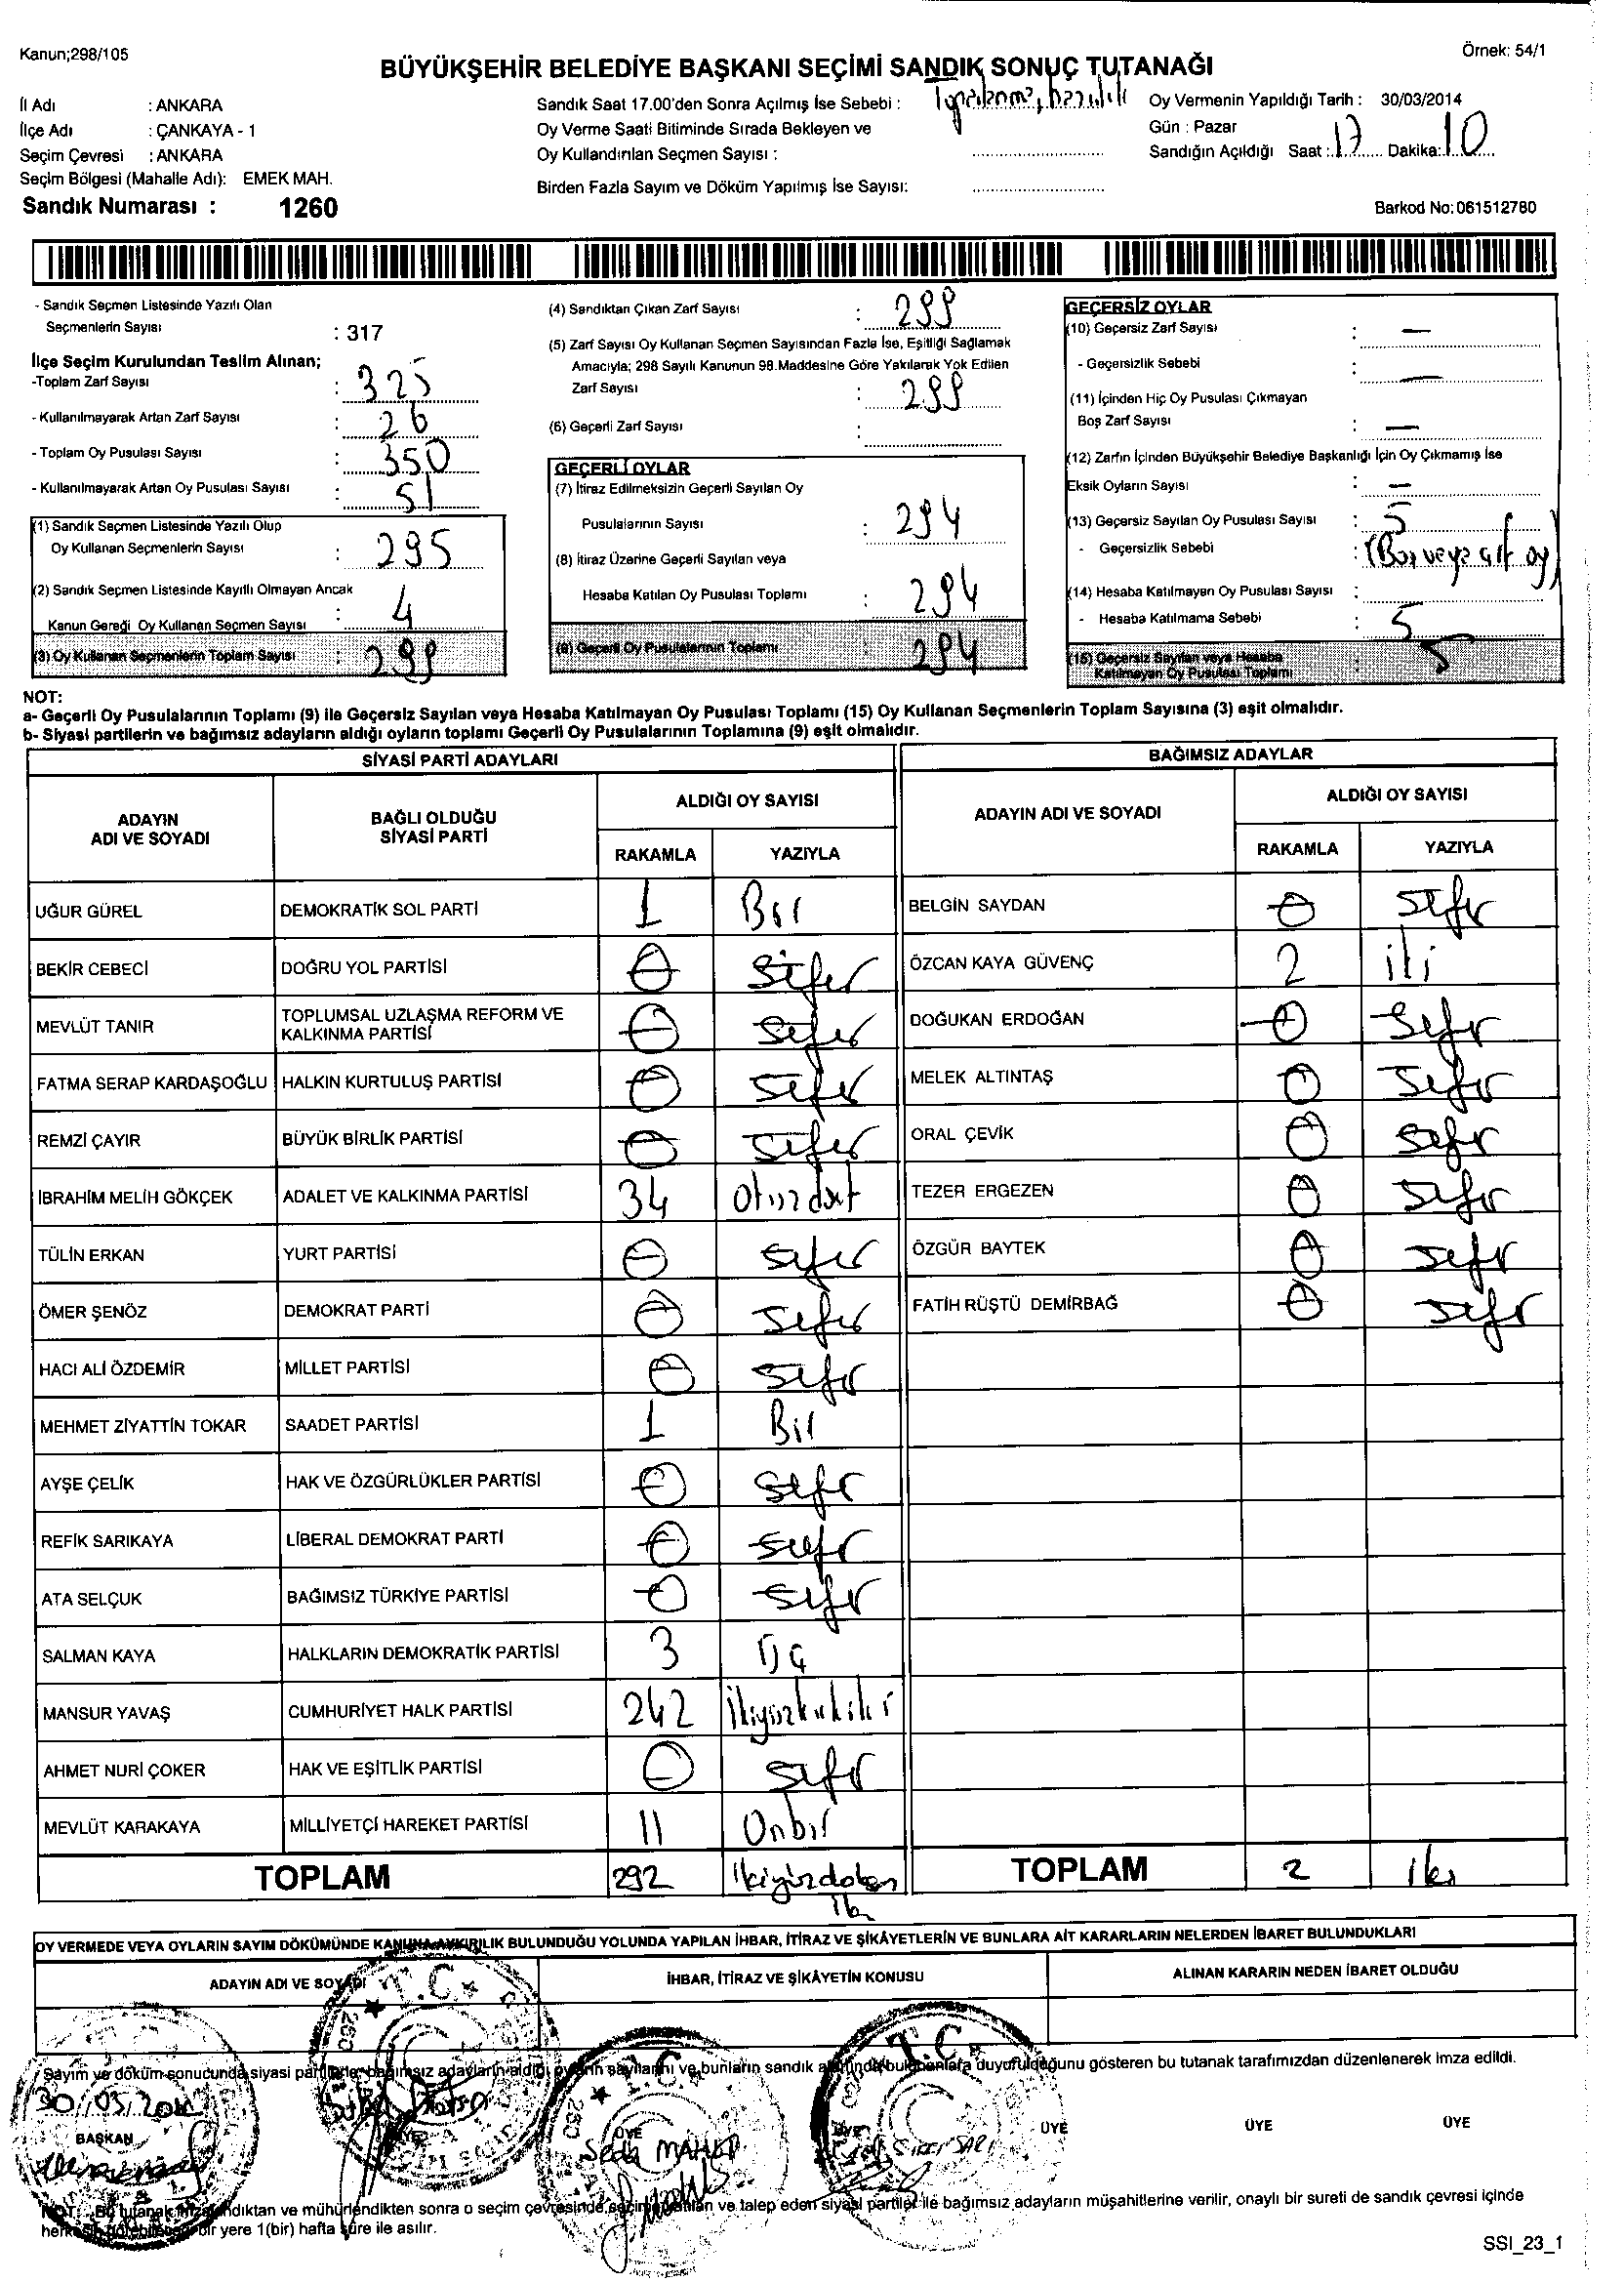 Kanun;298/105
Örnek: 54/1
BÜYÜKŞEHİR BELEDİYE BAŞKANI SEÇİMİ SANDIK SONUÇ TUTANAĞI
İl Adı : ANKARA
İlçe Adı : ÇANKAYA - 1
Seçim Çevresi : ANKARA
Seçim Bölgesi (Mahalle Adı): EMEK MAH.
Sandık Numarası : 1260
Sandık Saat 17.00'den Sonra Açılmış İse Sebebi :
Oy Verme Saati Bitiminde Sırada Bekleyen ve
Oy Kullandırılan Seçmen Sayısı :
Birden Fazla Sayım ve Döküm Yapılmış İse Sayısı:
Oy Vermenin Yapıldığı Tarih : 30/03/2014
Gün : Pazar
Sandığın Açıldığı Saat : 17 Dakika: 10
Barkod No: 061512780
- Sandık Seçmen Listesinde Yazılı Olan
Seçmenlerin Sayısı : 317
İlçe Seçim Kurulundan Teslim Alınan;
-Toplam Zarf Sayısı : 325
- Kullanılmayarak Artan Zarf Sayısı : 26
- Toplam Oy Pusulası Sayısı : 350
- Kullanılmayarak Artan Oy Pusulası Sayısı : 51
(1) Sandık Seçmen Listesinde Yazılı Olup
Oy Kullanan Seçmenlerin Sayısı : 295
(2) Sandık Seçmen Listesinde Kayıtlı Olmayan Ancak
Kanun Gereği Oy Kullanan Seçmen Sayısı : 4
(3) Oy Kullanan Seçmenlerin Toplam Sayısı : 299
(4) Sandıktan Çıkan Zarf Sayısı : 299
(5) Zarf Sayısı Oy Kullanan Seçmen Sayısından Fazla İse, Eşitliği Sağlamak
Amacıyla; 298 Sayılı Kanunun 98.Maddesine Göre Yakılarak Yok Edilen
Zarf Sayısı : 299
(6) Geçerli Zarf Sayısı :
GEÇERLİ OYLAR
(7) İtiraz Edilmeksizin Geçerli Sayılan Oy
Pusulalarının Sayısı : 294
(8) İtiraz Üzerine Geçerli Sayılan veya
Hesaba Katılan Oy Pusulası Toplamı : 294
(9) Geçerli Oy Pusulalarının Toplamı : 294
GEÇERSİZ OYLAR
(10) Geçersiz Zarf Sayısı : —
- Geçersizlik Sebebi : —
(11) İçinden Hiç Oy Pusulası Çıkmayan
Boş Zarf Sayısı : —
(12) Zarfın İçinden Büyükşehir Belediye Başkanlığı İçin Oy Çıkmamış İse
Eksik Oyların Sayısı : —
(13) Geçersiz Sayılan Oy Pusulası Sayısı : 5
- Geçersizlik Sebebi : (Boş veya çift oy)
(14) Hesaba Katılmayan Oy Pusulası Sayısı :
- Hesaba Katılmama Sebebi : 5
(15) Geçersiz Sayılan veya Hesaba
Katılmayan Oy Pusulası Toplamı : 5
NOT:
a- Geçerli Oy Pusulalarının Toplamı (9) ile Geçersiz Sayılan veya Hesaba Katılmayan Oy Pusulası Toplamı (15) Oy Kullanan Seçmenlerin Toplam Sayısına (3) eşit olmalıdır.
b- Siyasi partilerin ve bağımsız adayların aldığı oyların toplamı Geçerli Oy Pusulalarının Toplamına (9) eşit olmalıdır.
SİYASİ PARTİ ADAYLARI
ADAYIN ADI VE SOYADI
BAĞLI OLDUĞU SİYASİ PARTİ
ALDIĞI OY SAYISI
RAKAMLA YAZIYLA
UĞUR GÜREL DEMOKRATİK SOL PARTİ 1 Bir
BEKİR CEBECİ DOĞRU YOL PARTİSİ 0 Sıfır
MEVLÜT TANIR TOPLUMSAL UZLAŞMA REFORM VE KALKINMA PARTİSİ 0 Sıfır
FATMA SERAP KARDAŞOĞLU HALKIN KURTULUŞ PARTİSİ 0 Sıfır
REMZİ ÇAYIR BÜYÜK BİRLİK PARTİSİ 0 Sıfır
İBRAHİM MELİH GÖKÇEK ADALET VE KALKINMA PARTİSİ 34 otuzdört
TÜLİN ERKAN YURT PARTİSİ 0 Sıfır
ÖMER ŞENÖZ DEMOKRAT PARTİ 0 Sıfır
HACI ALİ ÖZDEMİR MİLLET PARTİSİ 0 Sıfır
MEHMET ZİYATTİN TOKAR SAADET PARTİSİ 1 Bir
AYŞE ÇELİK HAK VE ÖZGÜRLÜKLER PARTİSİ 0 Sıfır
REFİK SARIKAYA LİBERAL DEMOKRAT PARTİ 0 Sıfır
ATA SELÇUK BAĞIMSIZ TÜRKİYE PARTİSİ 0 Sıfır
SALMAN KAYA HALKLARIN DEMOKRATİK PARTİSİ 3 Üç
MANSUR YAVAŞ CUMHURİYET HALK PARTİSİ 242 İkiyüzkırkiki
AHMET NURİ ÇOKER HAK VE EŞİTLİK PARTİSİ 0 Sıfır
MEVLÜT KARAKAYA MİLLİYETÇİ HAREKET PARTİSİ 11 Onbir
TOPLAM 292 ikiyüzdoksan iki
BAĞIMSIZ ADAYLAR
ADAYIN ADI VE SOYADI
ALDIĞI OY SAYISI
RAKAMLA YAZIYLA
BELGİN SAYDAN 0 Sıfır
ÖZCAN KAYA GÜVENÇ 2 iki
DOĞUKAN ERDOĞAN 0 Sıfır
MELEK ALTINTAŞ 0 Sıfır
ORAL ÇEVİK 0 Sıfır
TEZER ERGEZEN 0 Sıfır
ÖZGÜR BAYTEK 0 Sıfır
FATİH RÜŞTÜ DEMİRBAĞ 0 Sıfır
TOPLAM 2 iki
OY VERMEDE VEYA OYLARIN SAYIM DÖKÜMÜNDE KANUNA AYKIRILIK BULUNDUĞU YOLUNDA YAPILAN İHBAR, İTİRAZ VE ŞİKÂYETLERİN VE BUNLARA AİT KARARLARIN NELERDEN İBARET BULUNDUKLARI
ADAYIN ADI VE SOYADI
İHBAR, İTİRAZ VE ŞİKÂYETİN KONUSU
ALINAN KARARIN NEDEN İBARET OLDUĞU
Sayım ve döküm sonucunda siyasi partilerle bağımsız adayların aldığı oyların sayılarını ve bunların sandık alanında bulunanlara duyurulduğunu gösteren bu tutanak tarafımızdan düzenlenerek imza edildi.
30/03/2014
BAŞKAN
ÜYE
Seda
ÜYE
ÜYE
ÜYE
ÜYE
T.C.
T.C.
T.C.
NOT: Bu tutanak imzalandıktan ve mühürlendikten sonra o seçim çevresinde seçime katılan ve talep eden siyasi partiler ile bağımsız adayların müşahitlerine verilir, onaylı bir sureti de sandık çevresi içinde
herkesin görebileceği bir yere 1(bir) hafta süre ile asılır.
SSI_23_1